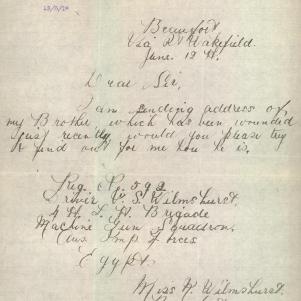 Beaufort
Via Pt Wakefield.
June 19th.
Dear Sir,
I am sending address of
my Brother which has been wounded
just recently would you please try
& find out for me how he is.
Reg. No 592
Driver V. S. Wilmshurst,
4th L. H. Brigade
Machine Gun Squadron,
Aus Imp Forces
Egypt.
Miss M. Wilmshurst.